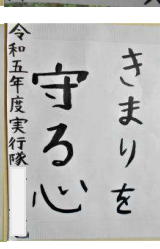 きまりを
守る心
令和五年度実行隊